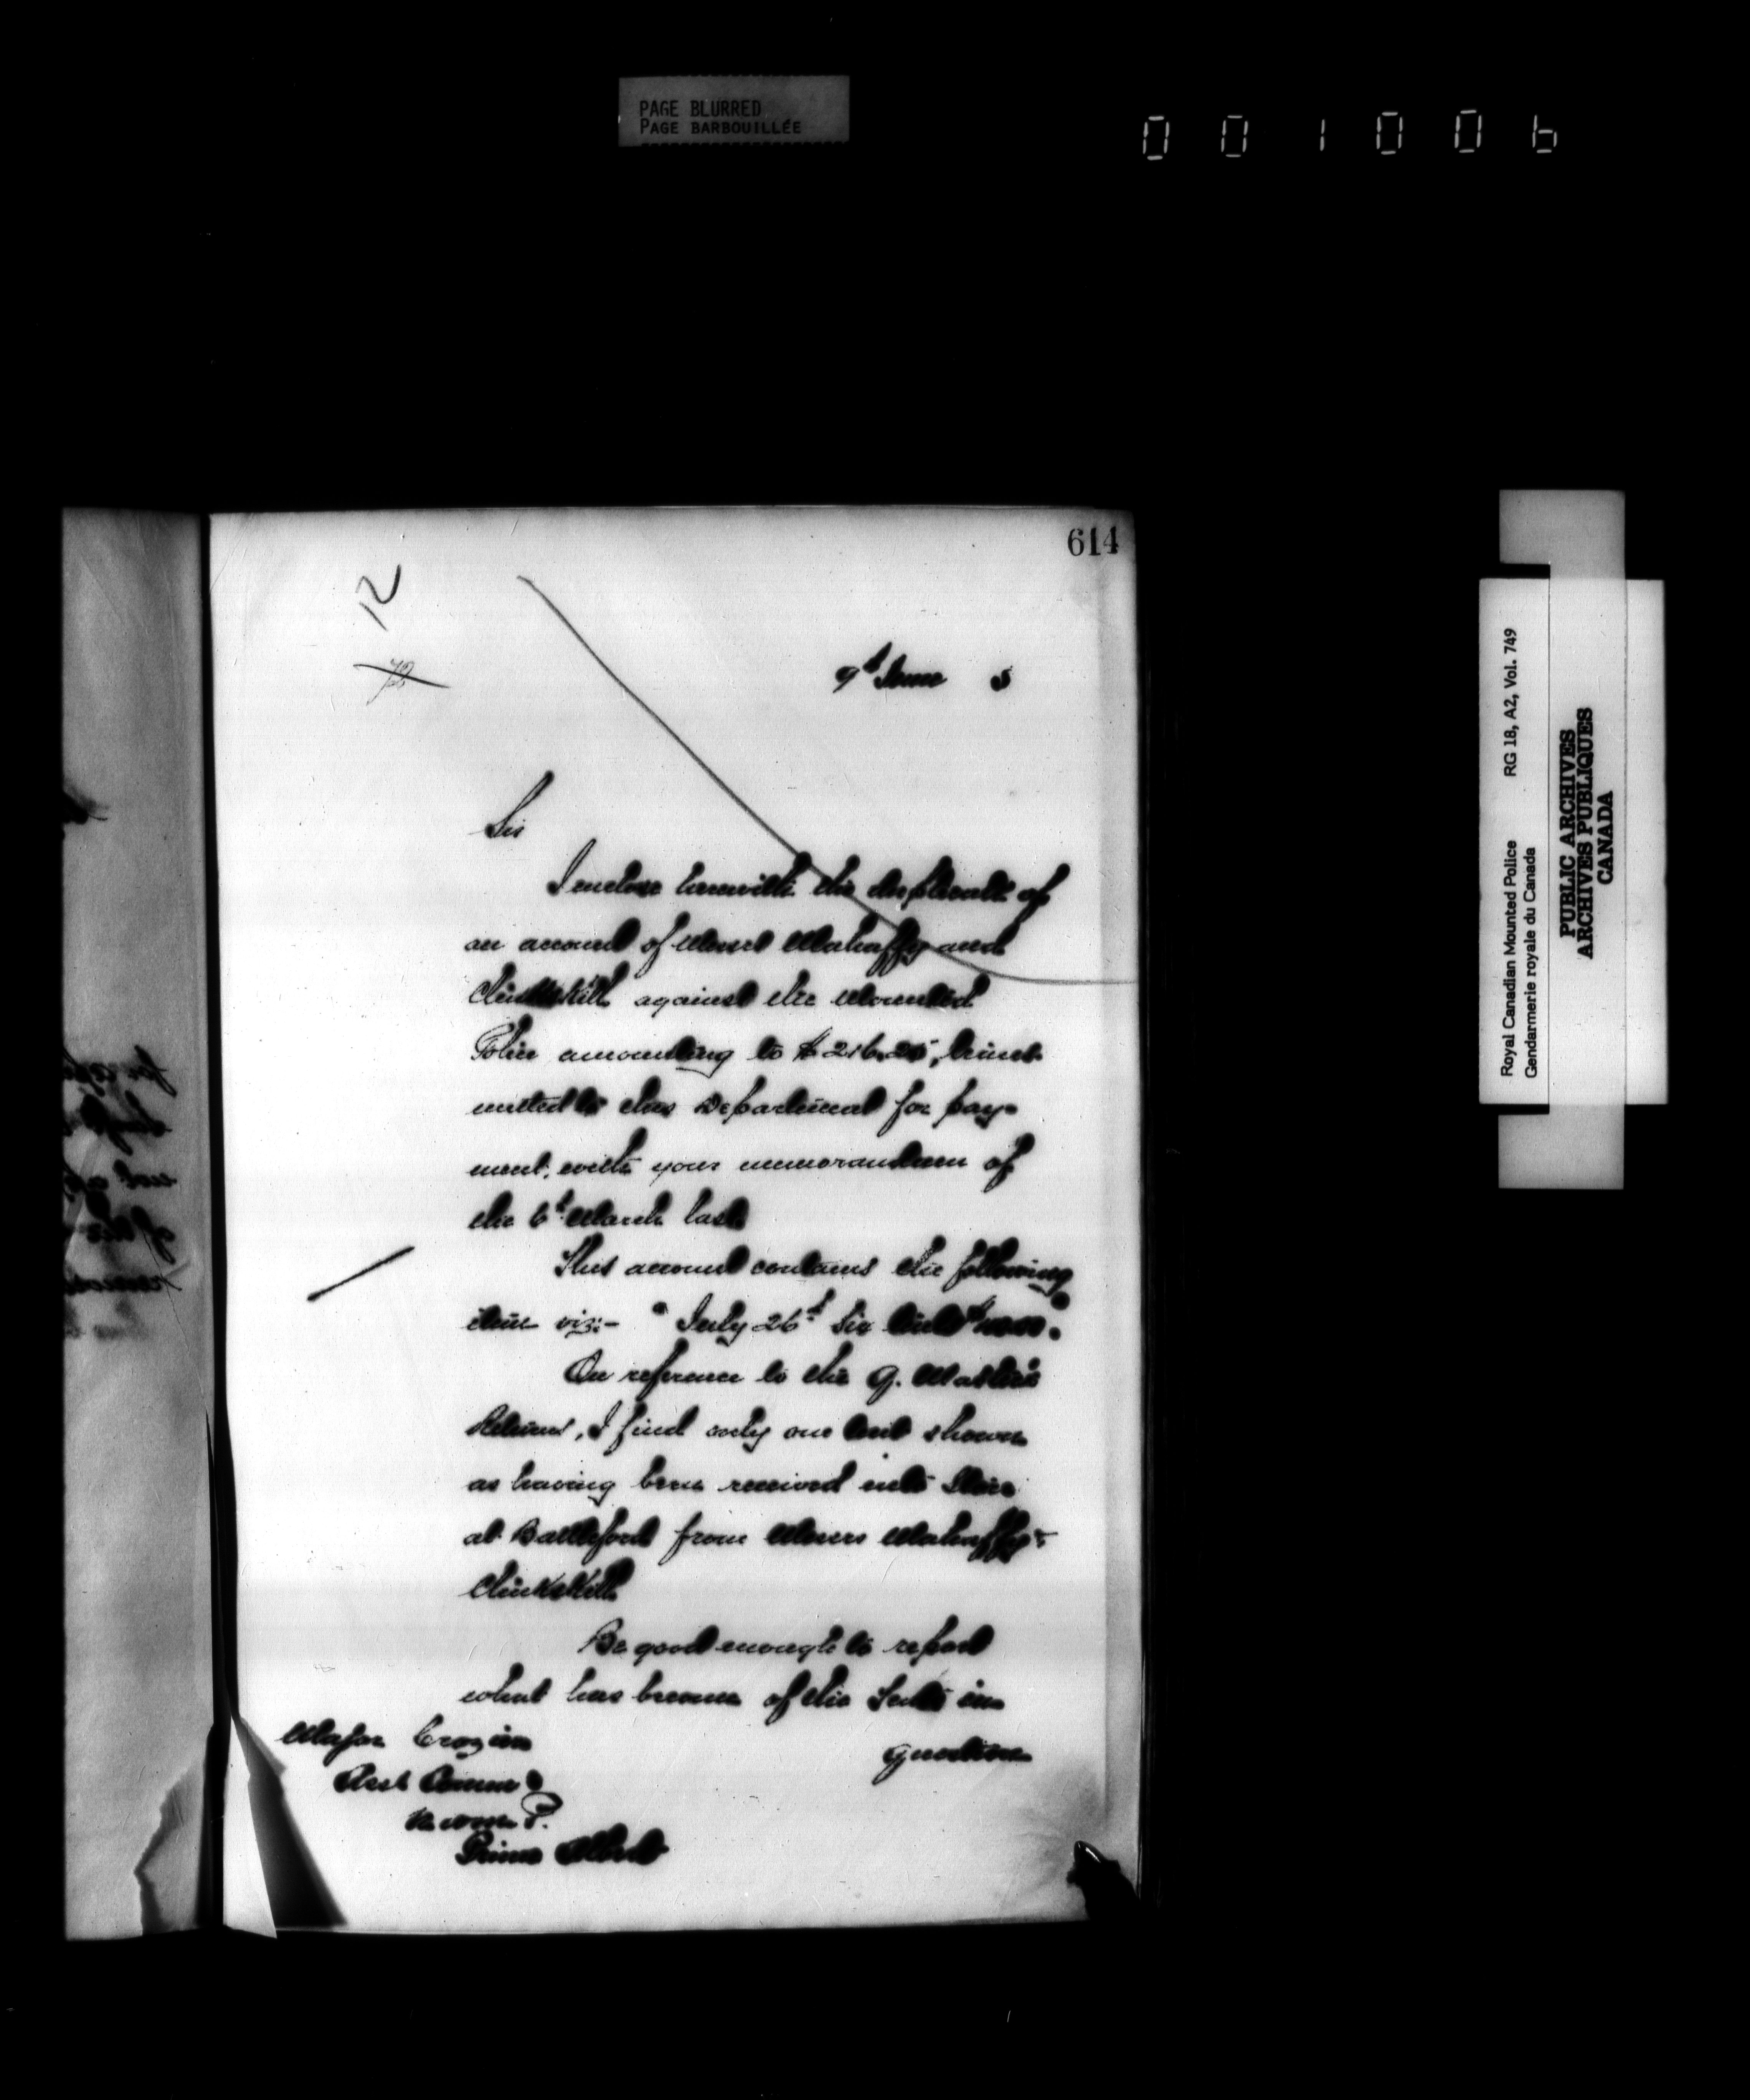 PAGE BLURRED
PAGE BARBOUILLÉE
001006
614
12
72
9th June 5
Sir
I enclose herewith the duplicate of
an account of Messrs Mahaffy and
Clinkskill against the Mounted
Police amounting to $216.25, trans-
mitted to this Department for pay-
ment, with your memorandum of
the 6th March last
This account contains the following
item viz:- "July 26th Six
On reference to the Q. Masters
Returns, I find only one tent shown
as having been received into Store
at Battleford from Messrs Mahaffy &
Clinkskill
Be good enough to report
what has become of the Tents in
question
Major Crozier
Asst Commr
N.W.M.P.
Prince Albert
Royal Canadian Mounted Police RG 18, A2, Vol. 749
Gendarmerie royale du Canada
PUBLIC ARCHIVES
ARCHIVES PUBLIQUES
CANADA